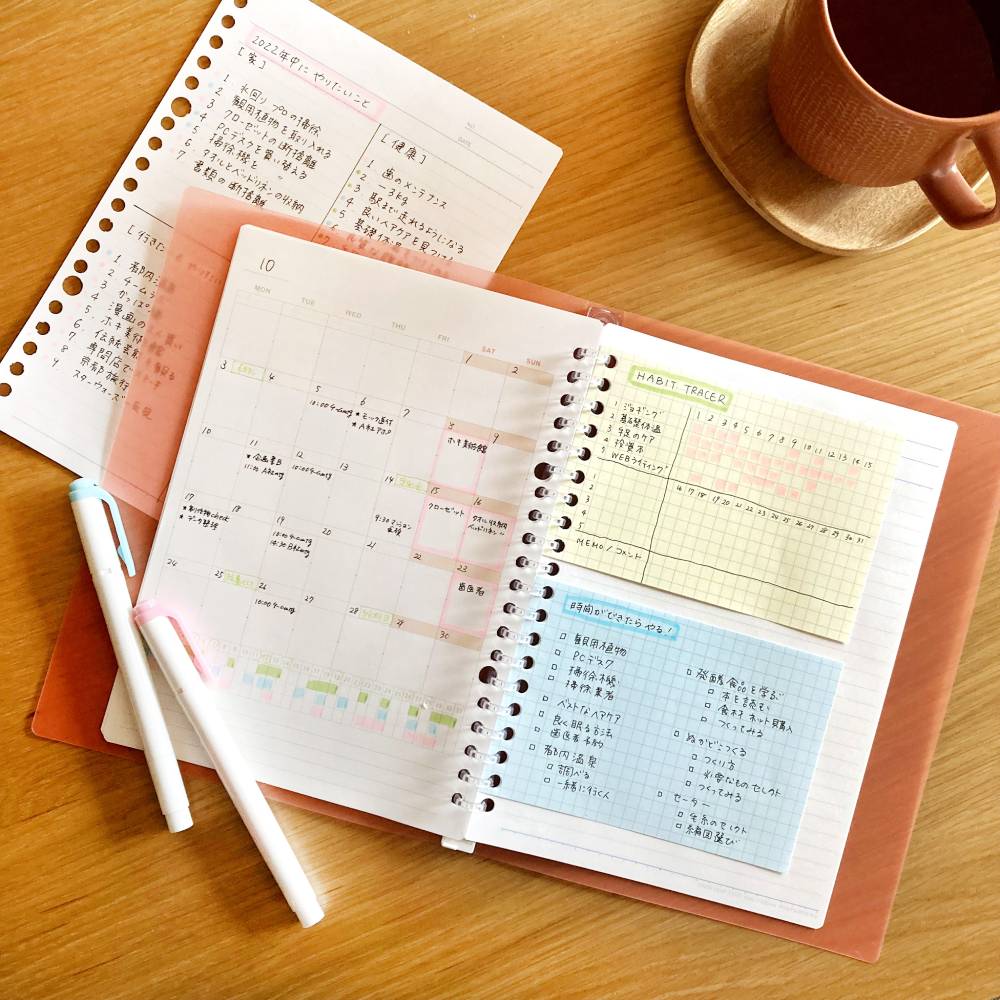 2022年中に やりたいこと
NO.
DATE
[家]
1 水回り プロの掃除
2 観用植物を取り入れる
3 クローゼットの断捨離
4 PCデスクを買い替える
5 掃除機を 〃
6 タオルとベッドリネンの収納
7 書類の断捨離
[健康]
1 歯のメンテナンス
2 -3kg
3 駅まで走れるようになる
4 良いヘアケアを見つける
5
6
[行きた
1 都内温泉
2 チーム
3 かっぱ
4 漫画の
5 ホキ美術
6 伝統芸
7 専門店で
8 京都旅行
9 スターウォーズ
10
MON TUE WED THU FRI SAT SUN
1 2
3 4 5 6 7 8 9
10:00 チームmtg
★A社アポ
ホキ美術館
10 11 12 13 14 15 16
★企画書〆
11:00 A社mtg
10:00 チームmtg
クローゼット
タオル収納
ベッドリネン 〃
17 18 19 20 21 22 23
★制作物check
★データ整理
10:00 チームmtg
14:30 B社mtg
9:30
歯医者
24 25 26 27 28 29 30
10:00 チームmtg
HABIT TRACER
1 2 3 4 5 6 7 8 9 10 11 12 13 14 15
1 ジョギング
2 基礎体温
3 手足のケア
4 拾質本
5 WEBライティング
16 17 18 19 20 21 22 23 24 25 26 27 28 29 30 31
2
3
4
5
MEMO / コメント
時間ができたらやる！
□ 観用植物
□ PCデスク
□ 掃除機
□ 掃除業者
□ ベストなヘアケア
□ 良く眠る方法
□ 歯医者予約
□ 都内温泉
□ 調べる
□ 一緒に行く人
□ 発酵食品を学ぶ
□ 本を読む
□ 食材 ネット購入
□ つくってみる
□ ぬかどこつくる
□ つくり方
□ 必要なものセレクト
□ つくってみる
□ セーター
□ 毛糸のセレクト
□ 編図選び